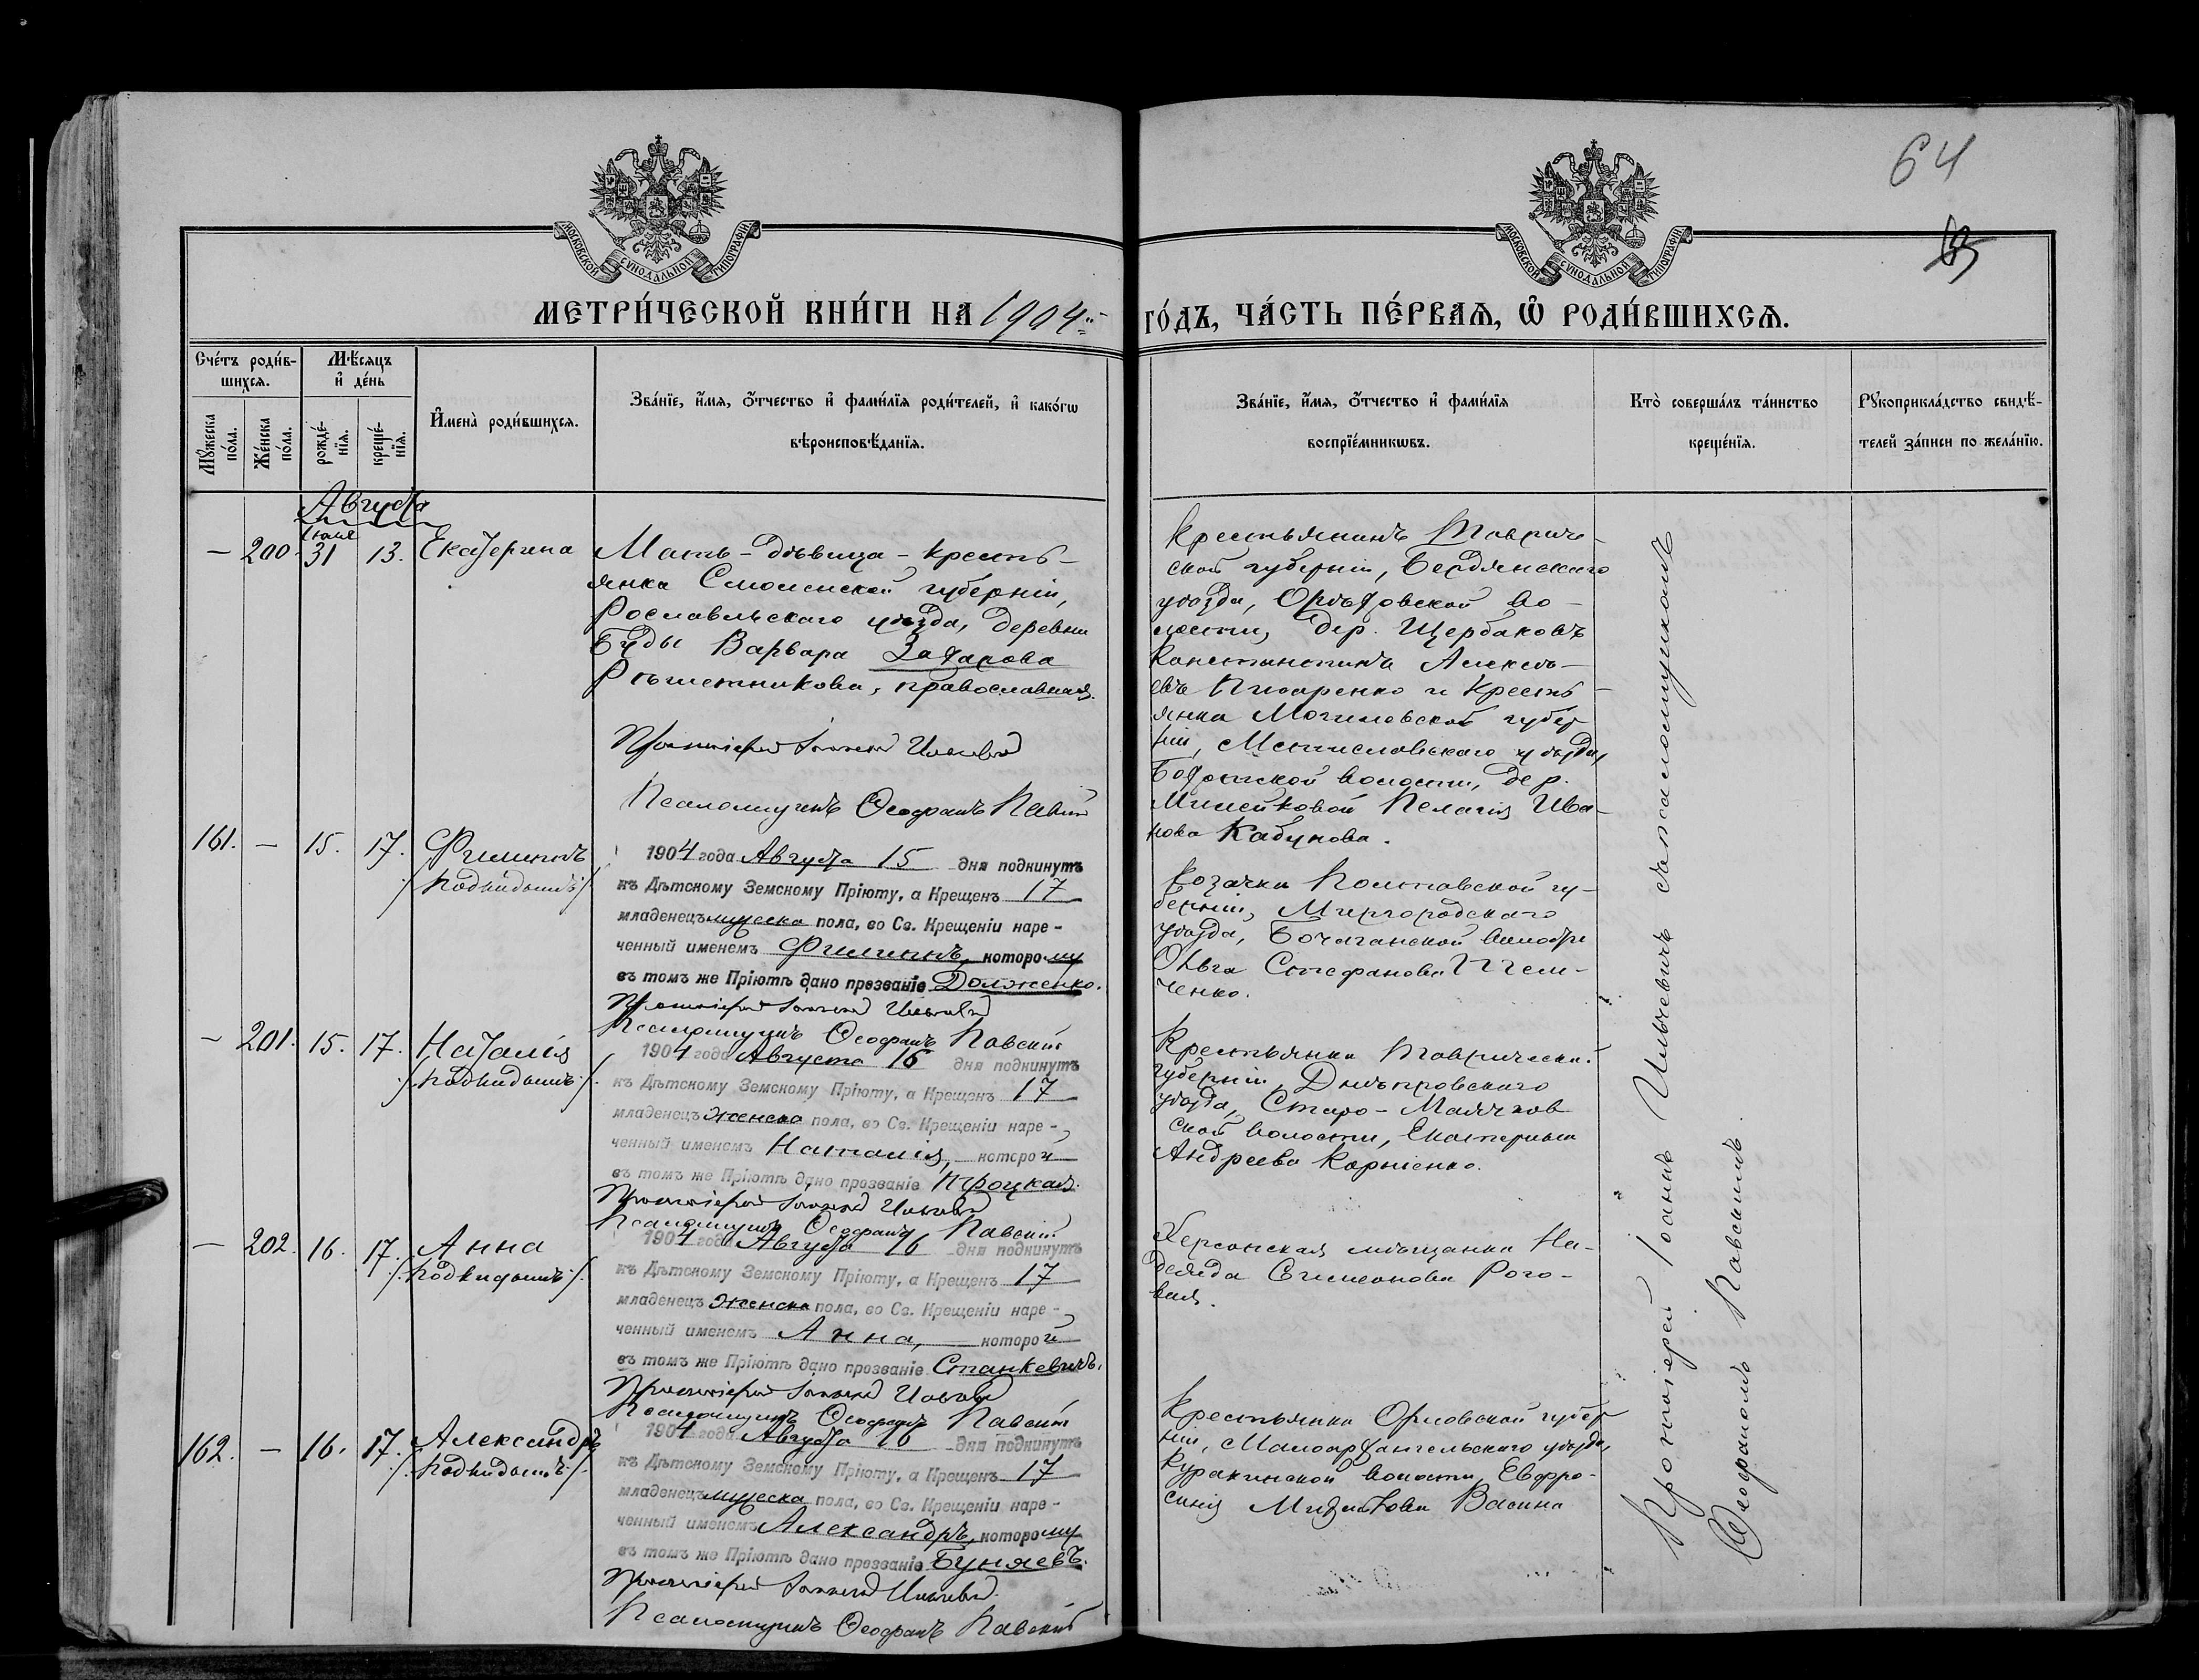 64
МОСКОВСКОЙ СѴНОДАЛЬНОЙ ТИПОГРАФІИ
МОСКОВСКОЙ СѴНОДАЛЬНОЙ ТИПОГРАФІИ
МЕТРИ́ЧЕСКОЙ КНИ́ГИ НА 1904
ГО́ДЪ, ЧА́СТЬ ПЕ́РВАѦ, Ѽ РОДИ́ВШИХСѦ.
Сче́тъ роди́в-
шихсѧ.
Мꙋ́жеска
по́ла.
Же́нска
по́ла.
Мѣ́сѧцъ
и҆ де́нь
рожде́-
нїѧ.
креще́-
нїѧ.
И҆мена̀ роди́вшихсѧ.
Зва́нїе, и҆́мѧ, ѻ҆́тчество и҆ фами́лїѧ роди́телей, и҆ како́гѡ
вѣроисповѣ́данїѧ.
Зва́нїе, и҆́мѧ, ѻ҆́тчество и҆ фами́лїѧ
воспрїе́мникѡвъ.
Кто̀ соверша́лъ та́инство
креще́нїѧ.
Рꙋкоприкла́дство свидѣ́-
телей за́писи по жела́нїю.
Августа
— 200 Іюля 31 13. Екатерина
Мать - дѣвица - кресть-
янка Смоленской губерніи,
Рославльскаго уѣзда, деревни
Буды Варвара Захарова
Рѣшетникова, православная.
Протоіерей Іоаннъ Ильчевич
Псаломщикъ Ѳеофанъ Павскій
Крестьянинъ Тавриче-
ской губерніи, Бердянскаго
уѣзда, Орѣховской во-
лости, дер. Щербаковъ
Константинъ Алексѣ-
евъ Писаренко и кресть-
янка Могилевской губер
ніи, Мстиславльскаго уѣзда,
волости, дер.
Пелагія Ива-
нова Кабунова.
161. — 15. 17. Филиппъ
/:подкидышъ:/
1904 года Августа 15 дня подкинутъ
къ Дѣтскому Земскому Пріюту, а Крещенъ 17
младенецъ мужеска пола, во Св. Крещеніи наре-
ченный именемъ Филиппъ, которому
въ томъ же Пріютѣ дано прозваніе Долженко.
Протоіерей Іоаннъ Ильчевич
Псаломщикъ Ѳеофанъ Павскій
Козачка Полтавской гу-
берніи, Миргородскаго
уѣзда, волости
Ольга Стефанова
ченко.
— 201. 15. 17. Наталія
/:подкидышъ:/
1904 года Августа 16 дня подкинутъ
къ Дѣтскому Земскому Пріюту, а Крещенъ 17
младенецъ женска пола, во Св. Крещеніи наре-
ченный именемъ Наталія, которой
въ томъ же Пріютѣ дано прозваніе Троцкая.
Протоіерей Іоаннъ Ильчевич
Псаломщикъ Ѳеофанъ Павскій
Крестьянка Таврической
губерніи, Днѣпровскаго
уѣзда, Старо-Маячков
ской волости, Екатерина
Андреева Корніенко.
— 202. 16. 17. Анна
/:подкидышъ:/
1904 года Августа 16 дня подкинутъ
къ Дѣтскому Земскому Пріюту, а Крещенъ 17
младенецъ женска пола, во Св. Крещеніи наре-
ченный именемъ Анна, которой
въ томъ же Пріютѣ дано прозваніе Станкевичъ.
Протоіерей Іоаннъ Ильчевич
Псаломщикъ Ѳеофанъ Павскій
Херсонская мѣщанка На-
дежда Симеонова Рого-
вая.
162. — 16. 17. Александръ
/:подкидышъ:/
1904 года Августа 16 дня подкинутъ
къ Дѣтскому Земскому Пріюту, а Крещенъ 17
младенецъ мужеска пола, во Св. Крещеніи наре-
ченный именемъ Александръ, которому
въ томъ же Пріютѣ дано прозваніе Буняевъ.
Протоіерей Іоаннъ Ильчевич
Псаломщикъ Ѳеофанъ Павскій
Крестьянка Орловской губер
ніи, Малоархангельскаго уѣзда,
Куракинской волости, Евфро-
синія Васина
Протоіерей Іоаннъ Ильчевичъ съ псаломщикомъ
Ѳеофаномъ Павскимъ.